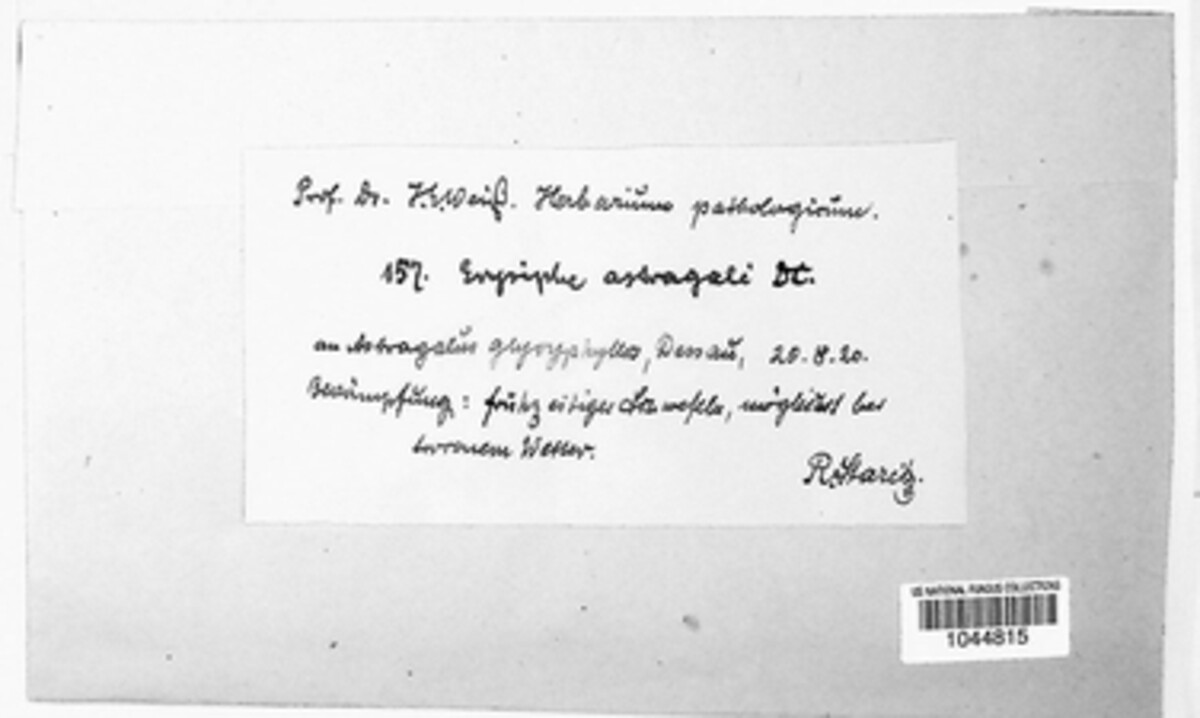 Prof. Dr. H. W. Weiß. Herbarium pathologicum.
157. Erysiphe astragali DC.
an Astragalus glycyphyllos, Dessau, 20.8.20.
Bekämpfung: frühzeitiges Schwefeln, möglichst bei
trocknem Wetter.
R. Staritz.
US NATIONAL FUNGUS COLLECTIONS
1044815